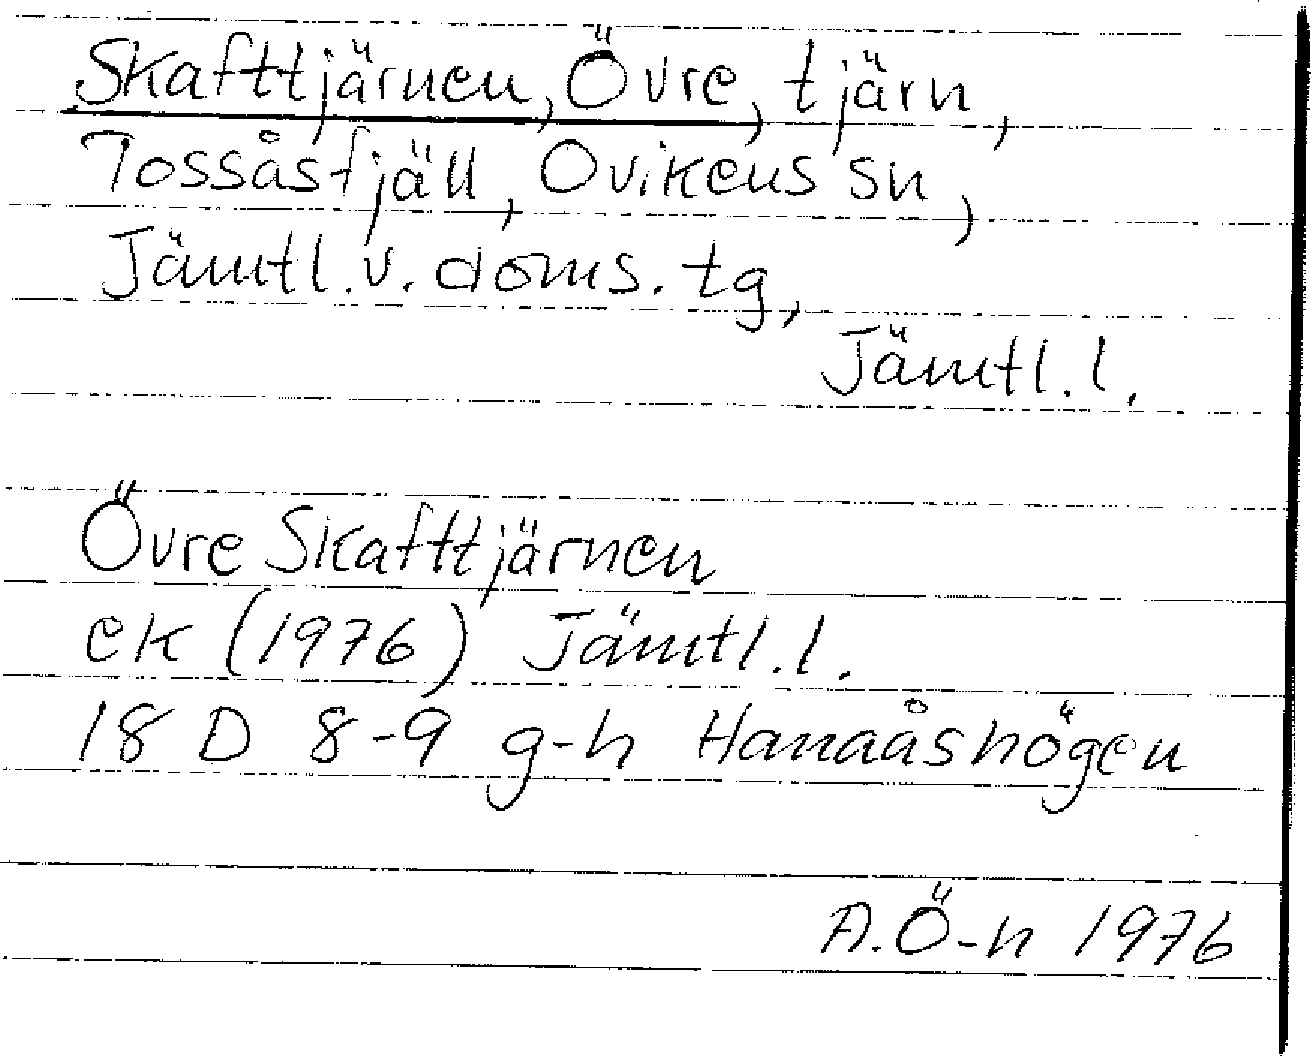 Skafttjärnen, Övre, tjärn,
Tossåsfjäll, Ovikens sn,
Jämtl.v. doms. tg,
Jämtl. l.
Övre Skafttjärnen
ek (1976) Jämtl. l.
18 D 8-9 g-h Hanaåshögen
A.Ö-n 1976